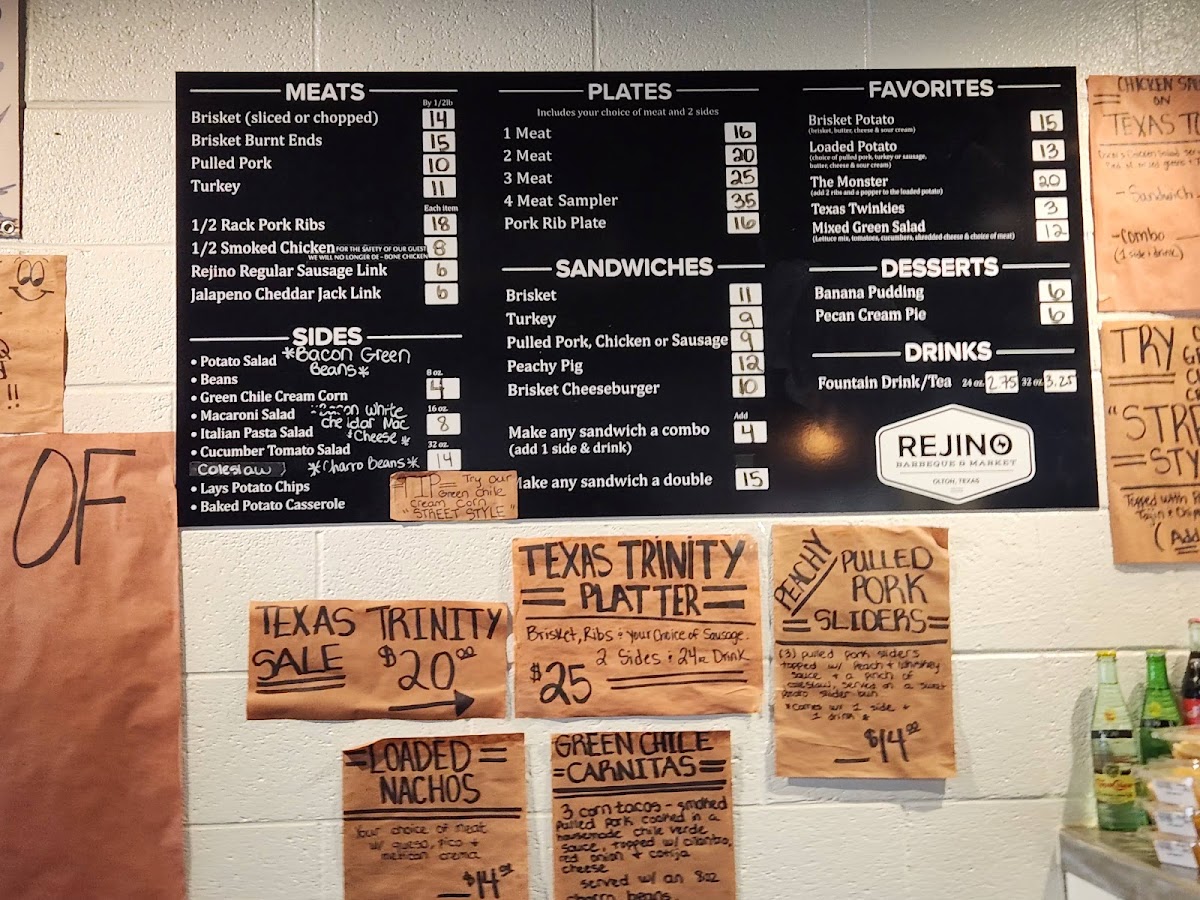 MEATS
By 1/2lb
Brisket (sliced or chopped) 14
Brisket Burnt Ends 15
Pulled Pork 10
Turkey 11
Each item
1/2 Rack Pork Ribs 18
1/2 Smoked Chicken FOR THE SAFETY OF OUR GUEST 8
WE WILL NO LONGER DE-BONE CHICKEN
Rejino Regular Sausage Link 6
Jalapeno Cheddar Jack Link 6
SIDES
• Potato Salad *Bacon Green
Beans*
• Beans 8 oz.
• Green Chile Cream Corn 4
• Macaroni Salad *Bacon White 16 oz.
Cheddar Mac 8
• Italian Pasta Salad & Cheese*
• Cucumber Tomato Salad 32 oz.
Coleslaw *Charro Beans* 14
• Lays Potato Chips
• Baked Potato Casserole
TIP= Try our
Green Chile
Cream Corn
"STREET STYLE"
PLATES
Includes your choice of meat and 2 sides
1 Meat 16
2 Meat 20
3 Meat 25
4 Meat Sampler 35
Pork Rib Plate 16
SANDWICHES
Brisket 11
Turkey 9
Pulled Pork, Chicken or Sausage 9
Peachy Pig 12
Brisket Cheeseburger 10
Add
Make any sandwich a combo 4
(add 1 side & drink)
Make any sandwich a double 15
FAVORITES
Brisket Potato 15
(brisket, butter, cheese & sour cream)
Loaded Potato 13
(choice of pulled pork, turkey or sausage,
butter, cheese & sour cream)
The Monster 20
(add 2 ribs and a popper to the loaded potato)
Texas Twinkies 3
Mixed Green Salad 12
(Lettuce mix, tomatoes, cucumbers, shredded cheese & choice of meat)
DESSERTS
Banana Pudding 6
Pecan Cream Pie 6
DRINKS
Fountain Drink/Tea 24 oz. 2.75 32 oz. 3.25
REJINO
BARBEQUE & MARKET
OLTON, TEXAS
CHICKEN SA
ON
TEXAS T
- Sandwich
- Combo
(1 side & drink)
TRY
"STRE
STY
Topped with
Tajin &
(Add
!!
OF
TEXAS TRINITY
SALE $20.00
TEXAS TRINITY
PLATTER
Brisket, Ribs & Your Choice of Sausage.
2 Sides & 24oz Drink
$25
PEACHY PULLED
PORK
SLIDERS
(3) pulled pork sliders
topped w/ Peach & Whiskey
sauce & a pinch of
coleslaw, served on a sweet
potato slider bun
*comes w/ 1 side &
1 drink*
$14.00
LOADED
NACHOS
Your choice of meat
w/ queso, pico &
mexican crema
$14.00
GREEN CHILE
CARNITAS
3 corn tacos - smoked
pulled pork cooked in a
housemade chile verde
sauce, topped w/ cilantro,
red onion & cotija
cheese
served w/ an 8oz
charro beans